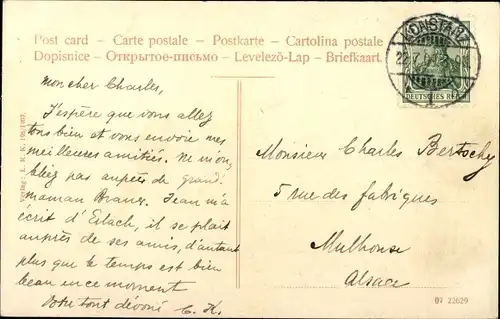 Post card – Carte postale – Postkarte – Cartolina postale
Dopisnice – Открытое-письмо – Levelező-Lap – Briefkaart.
KONSTANZ
DEUTSCHES REICH
Mon cher Charles,
J'espère que vous allez
tous bien et vous envoie mes
meilleures amitiés. Ne m'ou-
bliez pas auprès de grand'
maman Braun. Jean m'a
écrit d'Erlach, il se plait
auprès de ses amis, d'autant
plus que le temps est bien
beau en ce moment
Votre tout dévoué C. K.
Monsieur Charles Bertschy
5 rue des fabriques
Mulhouse
Alsace
Verlag: L. R. K.
07 22629